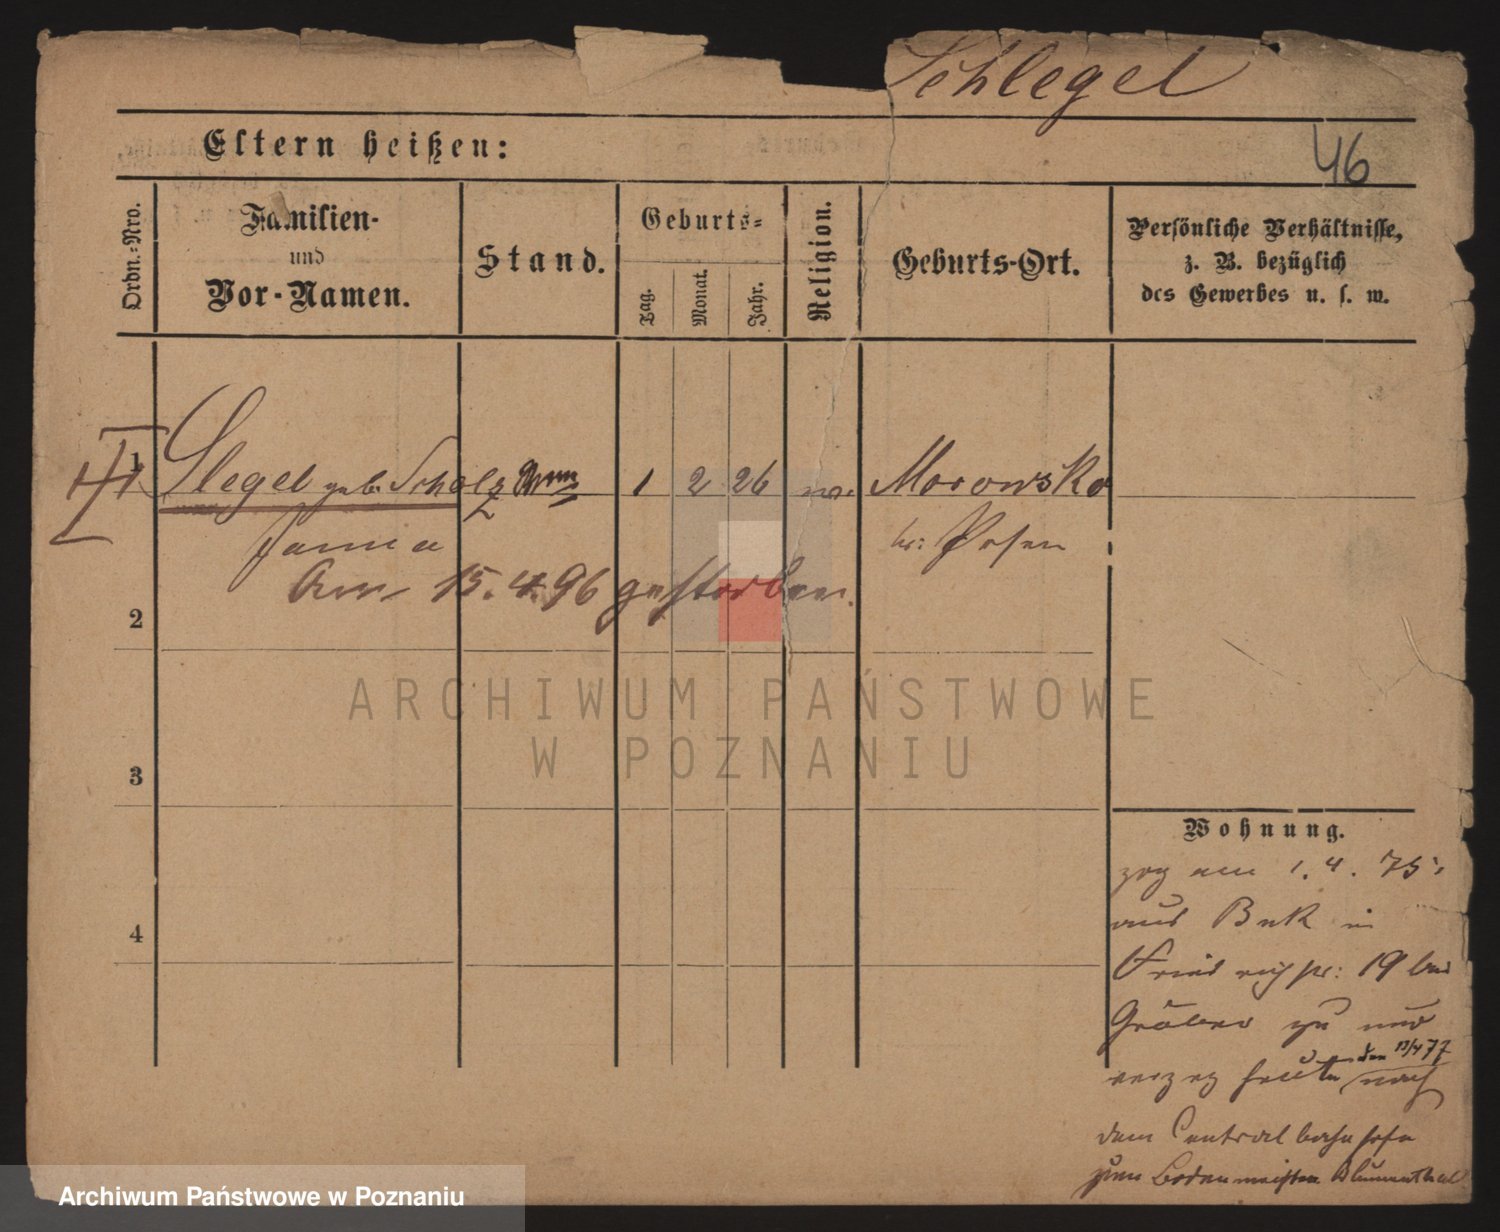 Schlegel
46
Eltern heißen:
Ordn.-Nro.
Familien-
und
Vor-Namen.
Stand.
Geburts-
Tag.
Monat.
Jahr.
Religion.
Geburts-Ort.
Persönliche Verhältnisse,
z. B. bezüglich
des Gewerbes u. s. w.
1
Slegel geb. Scholz
1 2 26
Morowsko
Hanna
b: Posen
Am 15.4.96 gestorben.
2
3
4
ARCHIWUM PAŃSTWOWE
W POZNANIU
Wohnung.
zog am 1. 4. 75
aus Buk in
Friedrichstr: 19 bei
Gräber zu und
den 13/4 77
verzog heute nach
dem Centralbahnhofe
zum Bodenmeister Blumenthal
Archiwum Państwowe w Poznaniu